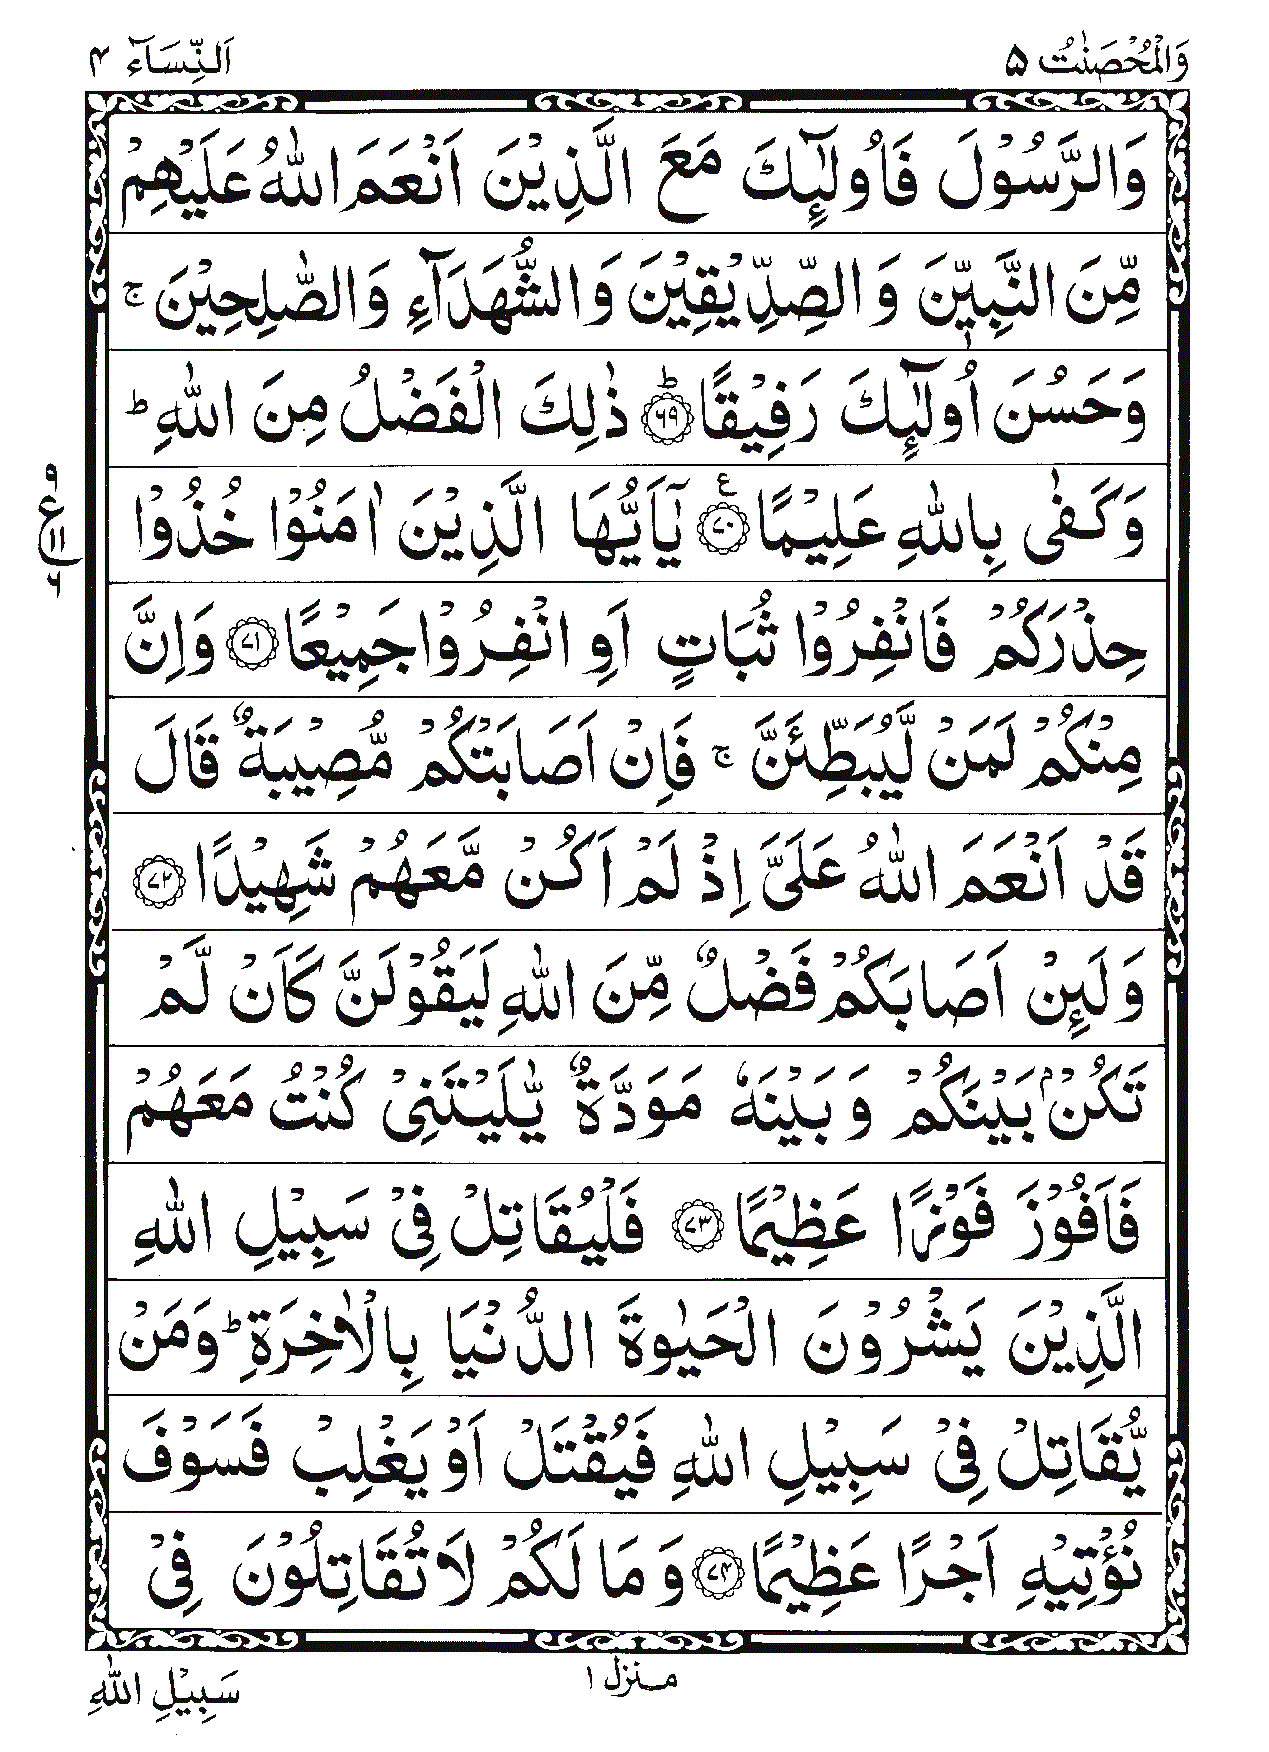 وَالْمُحْصَنٰتُ ۵
اَلنِّسَآء ۴
وَالرَّسُوْلَ فَاُولٰٓئِكَ مَعَ الَّذِيْنَ اَنْعَمَ اللّٰهُ عَلَيْهِمْ
مِّنَ النَّبِيّٖنَ وَالصِّدِّيْقِيْنَ وَالشُّهَدَآءِ وَالصّٰلِحِيْنَ ۚ
وَحَسُنَ اُولٰٓئِكَ رَفِيْقًا ؕ ﴿۶۹﴾ ذٰلِكَ الْفَضْلُ مِنَ اللّٰهِ ؕ
وَكَفٰى بِاللّٰهِ عَلِيْمًا ﴿۷۰﴾ ع يٰٓاَيُّهَا الَّذِيْنَ اٰمَنُوْا خُذُوْا
۹
ع
۱۱
۶
حِذْرَكُمْ فَانْفِرُوْا ثُبَاتٍ اَوِ انْفِرُوْا جَمِيْعًا ﴿۷۱﴾ وَاِنَّ
مِنْكُمْ لَمَنْ لَّيُبَطِّئَنَّ ۚ فَاِنْ اَصَابَتْكُمْ مُّصِيْبَةٌ قَالَ
قَدْ اَنْعَمَ اللّٰهُ عَلَيَّ اِذْ لَمْ اَكُنْ مَّعَهُمْ شَهِيْدًا ﴿۷۲﴾
وَلَئِنْ اَصَابَكُمْ فَضْلٌ مِّنَ اللّٰهِ لَيَقُوْلَنَّ كَاَنْ لَّمْ
تَكُنْۢ بَيْنَكُمْ وَبَيْنَهٗ مَوَدَّةٌ يّٰلَيْتَنِيْ كُنْتُ مَعَهُمْ
فَاَفُوْزَ فَوْزًا عَظِيْمًا ﴿۷۳﴾ فَلْيُقَاتِلْ فِيْ سَبِيْلِ اللّٰهِ
الَّذِيْنَ يَشْرُوْنَ الْحَيٰوةَ الدُّنْيَا بِالْاٰخِرَةِ ؕ وَمَنْ
يُّقَاتِلْ فِيْ سَبِيْلِ اللّٰهِ فَيُقْتَلْ اَوْ يَغْلِبْ فَسَوْفَ
نُؤْتِيْهِ اَجْرًا عَظِيْمًا ﴿۷۴﴾ وَمَا لَكُمْ لَا تُقَاتِلُوْنَ فِيْ
منزل ۱
سَبِيْلِ اللّٰهِ